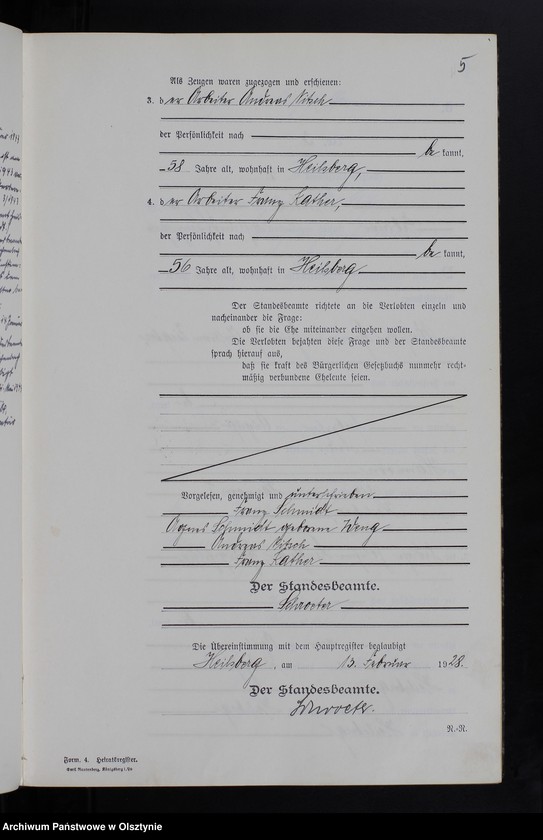 5
Als Zeugen waren zugezogen und erschienen:
3. der Arbeiter Andreas Nitsch
der Persönlichkeit nach
bekannt,
58 Jahre alt, wohnhaft in Heilsberg,
4. der Arbeiter Franz Kather,
der Persönlichkeit nach
bekannt,
56 Jahre alt, wohnhaft in Heilsberg
Der Standesbeamte richtete an die Verlobten einzeln und
nacheinander die Frage:
ob sie die Ehe miteinander eingehen wollen.
Die Verlobten bejahten diese Frage und der Standesbeamte
sprach hierauf aus,
daß sie kraft des Bürgerlichen Gesetzbuchs nunmehr recht-
mäßig verbundene Eheleute seien.
Vorgelesen, genehmigt und unterschrieben
Franz Schmidt
Agnes Schmidt geborene Weng
Andreas Nitsch
Franz Kather
Der Standesbeamte.
Schroeter
Die Übereinstimmung mit dem Hauptregister beglaubigt
Heilsberg, am 13. Februar 1928.
Der Standesbeamte.
Schroeter.
N.-R.
Form. 4. Heiratsregister.
Archiwum Państwowe w Olsztynie